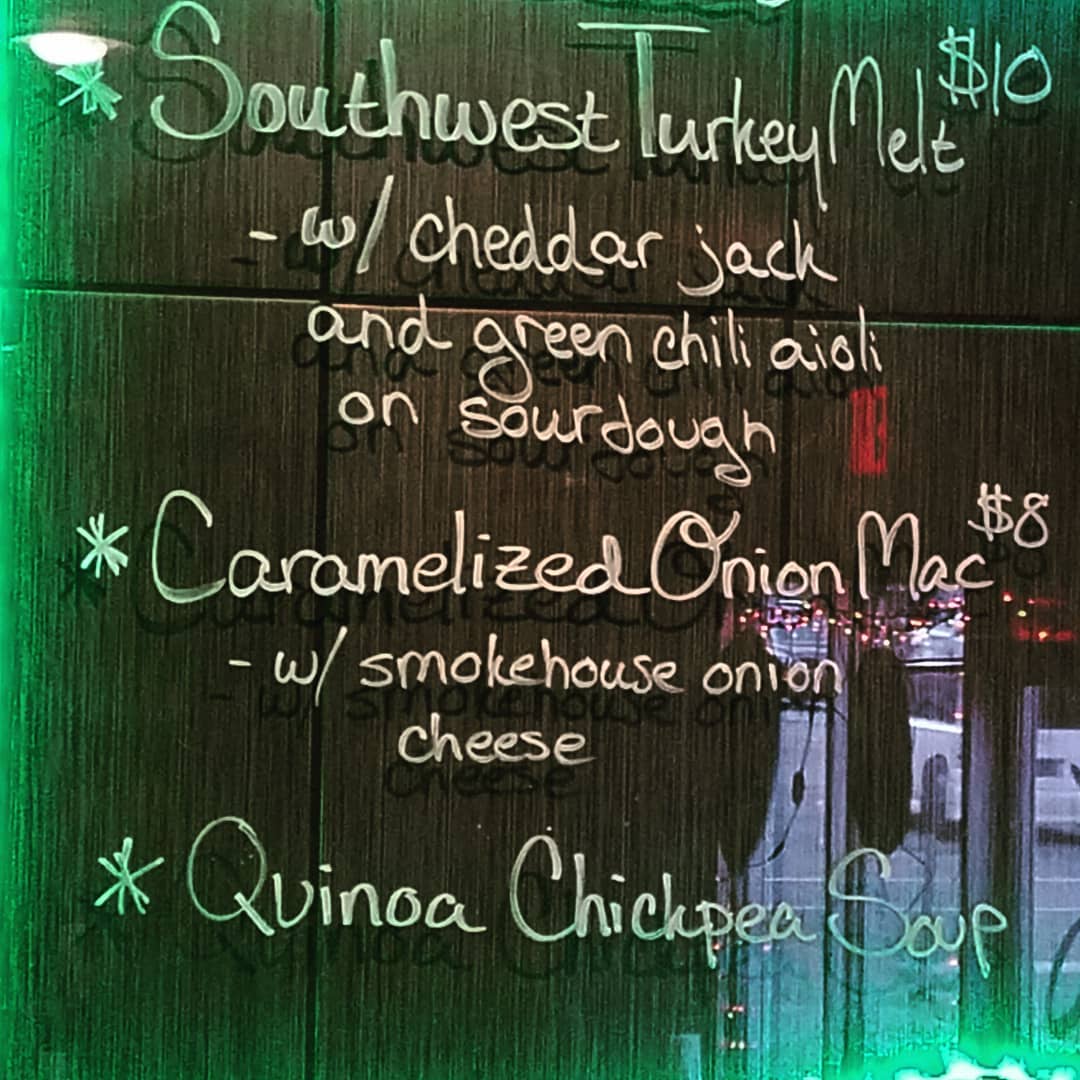 * Southwest Turkey Melt $10
- w/ cheddar jack
and green chili aioli
on sourdough
* Caramelized Onion Mac $8
- w/ smokehouse onion
cheese
* Quinoa Chickpea Soup